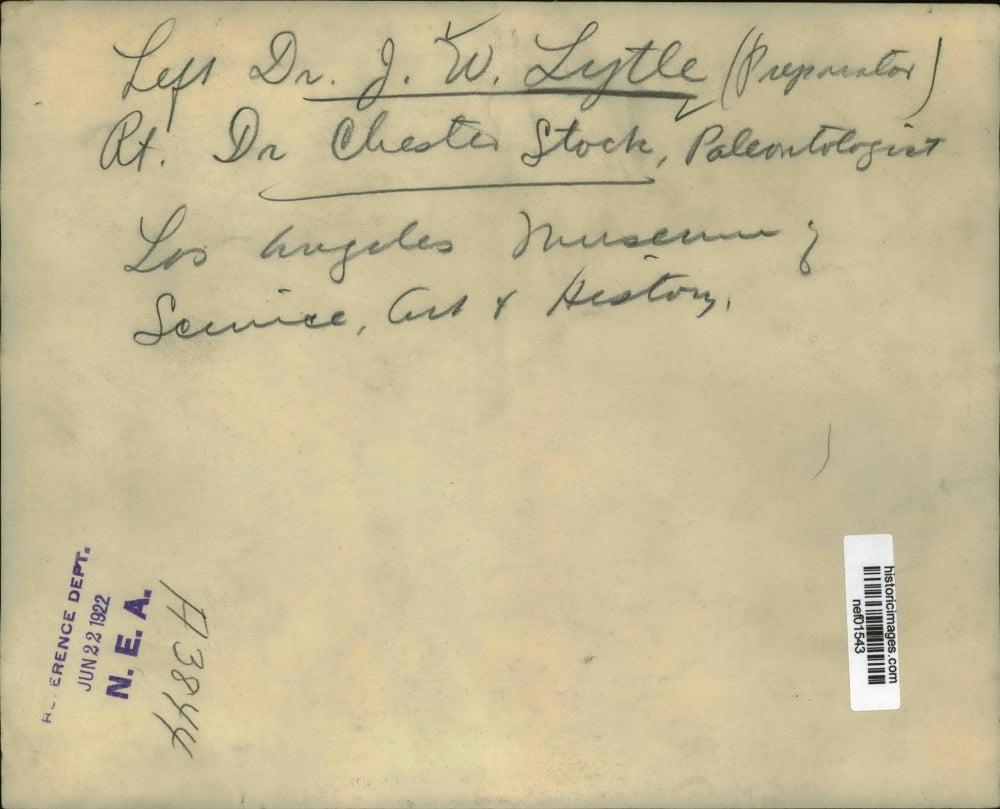 Left Dr. J. W. Lytle (Preparator)
Rt. Dr Chester Stock, Paleontologist
Los Angeles Museum of
Science, Art & History.
REFERENCE DEPT.
JUN 22 1922
N. E. A.
H3844
historicimages.com
nef01543